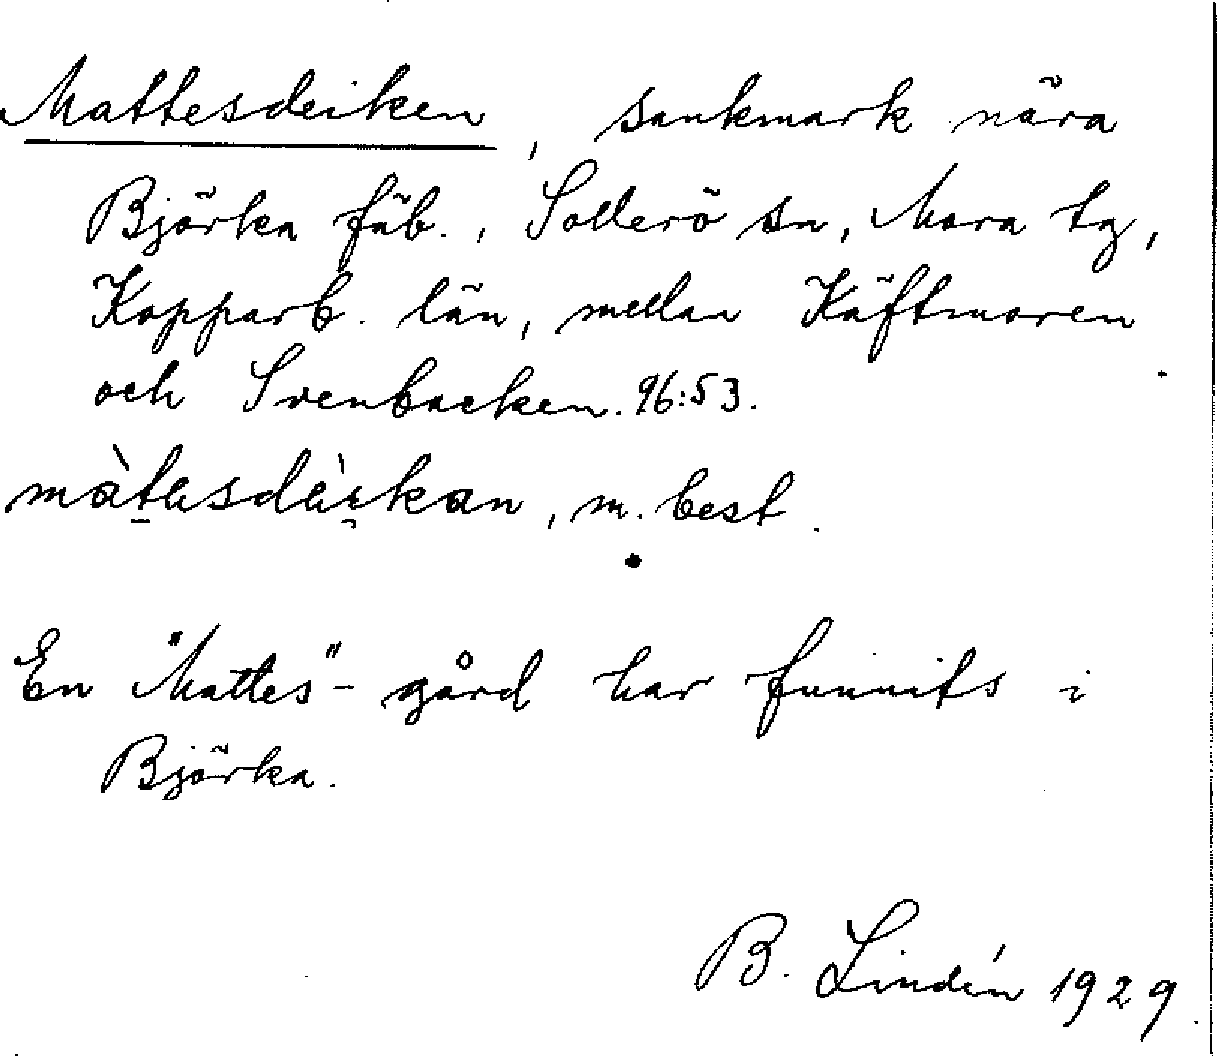 Mattesdeiken, sankmark nära
Björka fäb., Sollerö sn, Mora tg,
Kopparb. län, mellan Käftmoren
och Svenbacken. 96:53.
m. best.
En "Mattes"- gård har funnits i
Björka.
B. Lindén 1929.